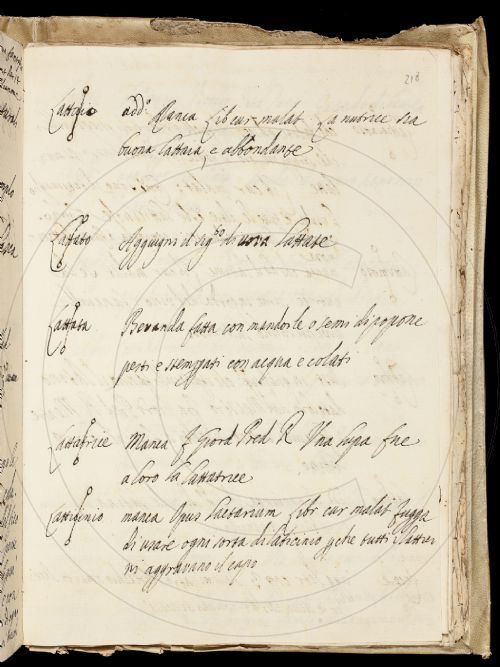 218
add.o Manca Lib cur malat La nutrice sia
buona lattaia, e abbondante
Lattato Aggiugni il sig.to di uova lattate
Lattata Bevanda fatta con mandorle o semi di popone
pesti e stemperati con acqua e colati
Lattatrice Manca Giord Pred R Una lupa fue
a loro la lattatrice
manca Opus lactarium Libr cur malat fugga
di usare ogni sorta di latticinio tutti i lattici
ni aggravano il capo